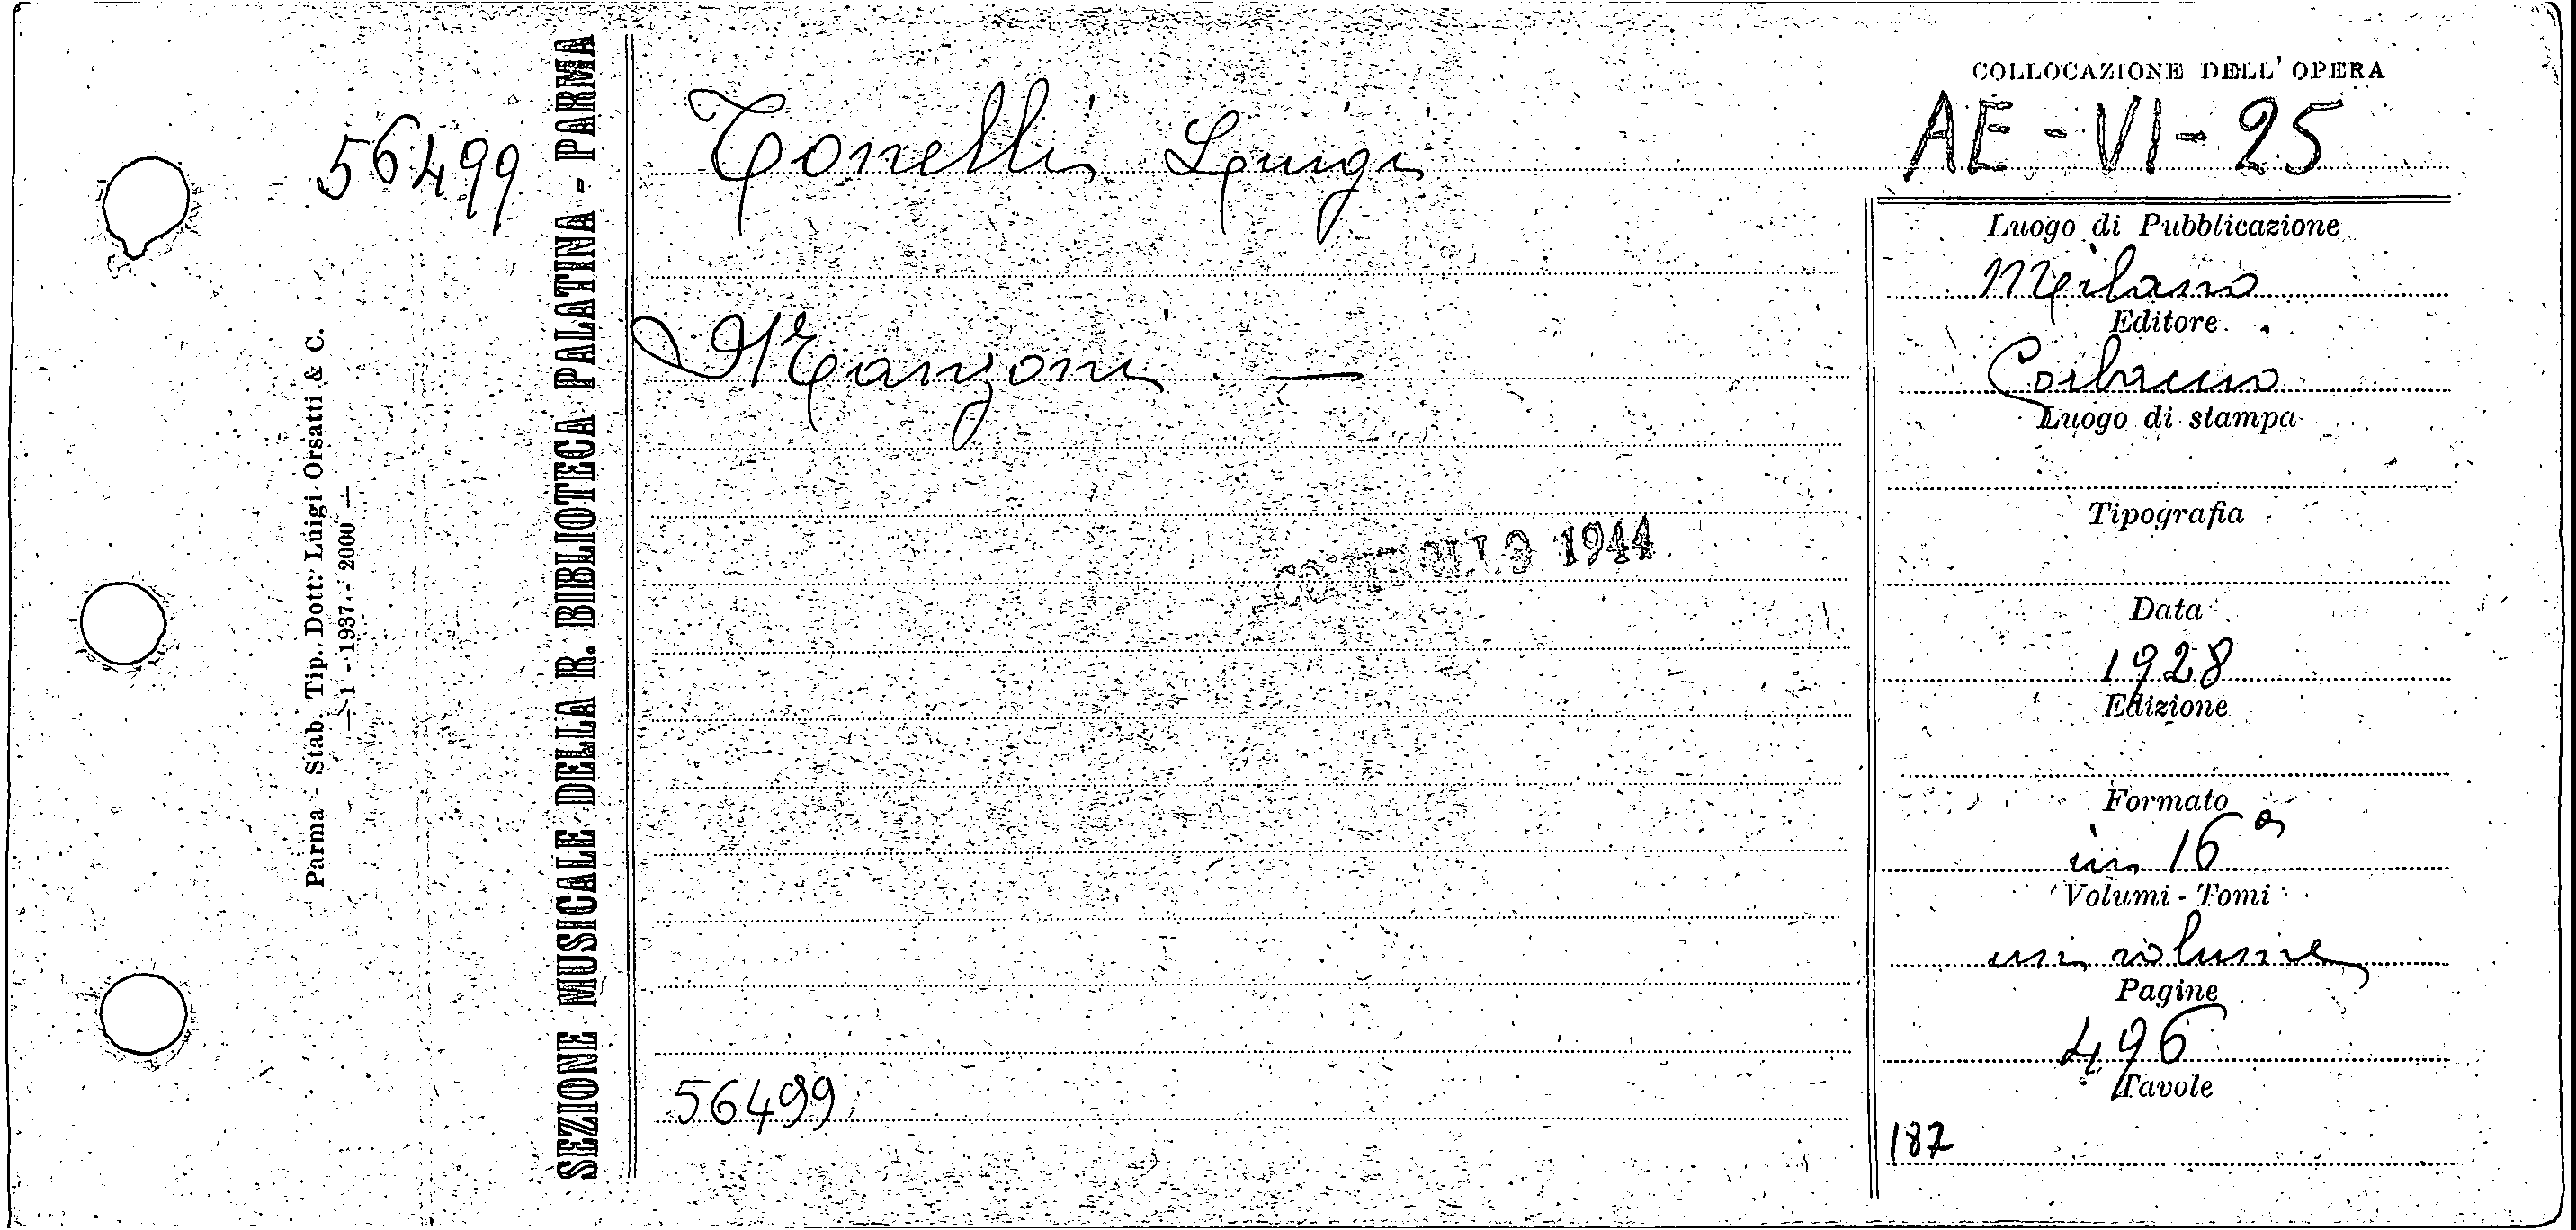 COLLOCAZIONE DELL' OPERA
AE - VI - 25
56499
Tonelli Luigi
Manzoni —
SEZIONE MUSICALE DELLA R. BIBLIOTECA PALATINA - PARMA
Parma - Stab. Tip. Dott. Luigi Orsatti & C.
— 1 - 1937 - 2000 —
CONTROLLO 1944
56499
Luogo di Pubblicazione
Milano
Editore
Corbaccio
Luogo di stampa
Tipografia
Data
1928
Edizione
Formato
in 16°
Volumi - Tomi
un volume
Pagine
496
Tavole
187